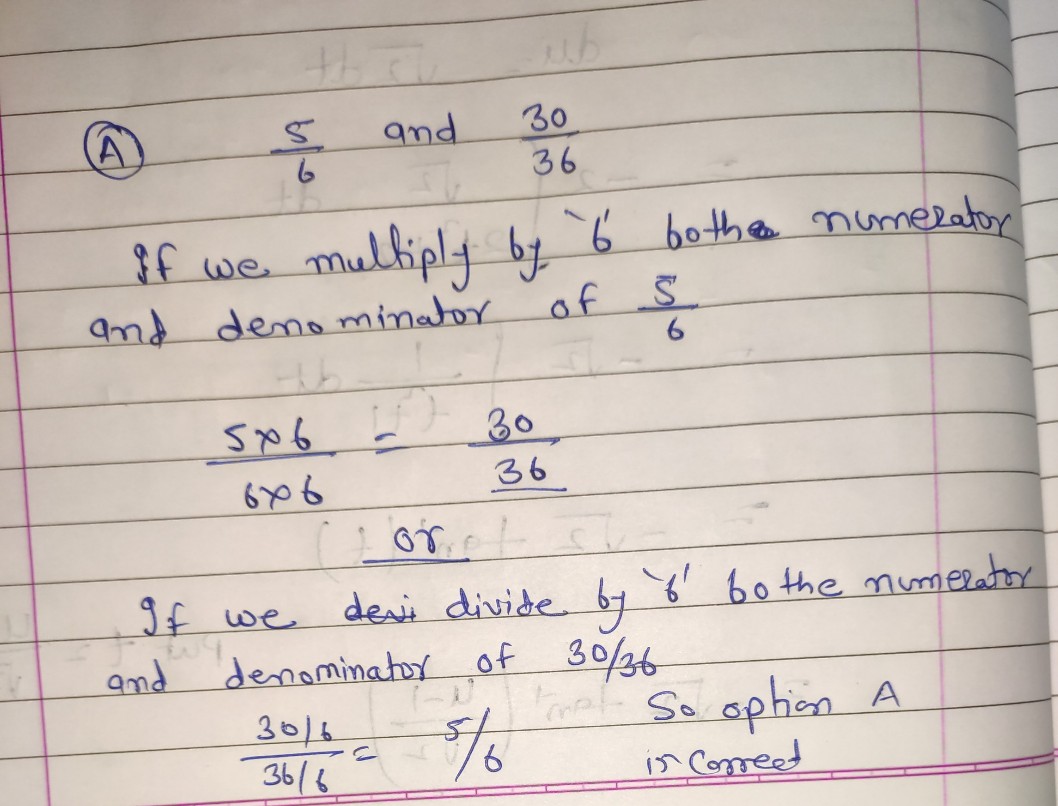 (A) 5/6 and 30/36
If we multiply by '6' bothe numerator
and denominator of 5/6
5×6/6×6 = 30/36
or
If we devi divide by '6' bothe numerator
and denominator of 30/36
30/6/36/6 = 5/6 So option A
is Correct